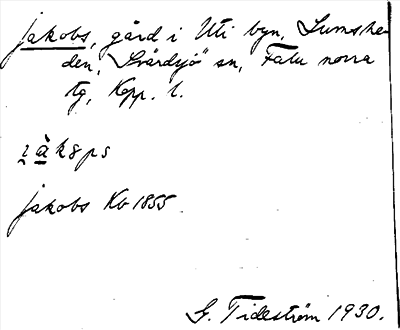 Jakobs, gård i Uti byn, Lumshe-
den, Svärdsjö sn, Falu norra
tg, Kopp. l.
Jakobs Kb 1855
G. Tideström 1930.